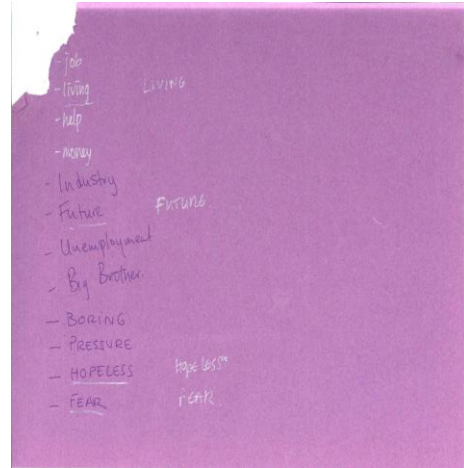 - job
- living LIVING
- help
- money
- Industry
- Future FUTURE
- Unemployment
- Big Brother.
- BORING
- PRESSURE
- HOPELESS HOPELESS
- FEAR FEAR